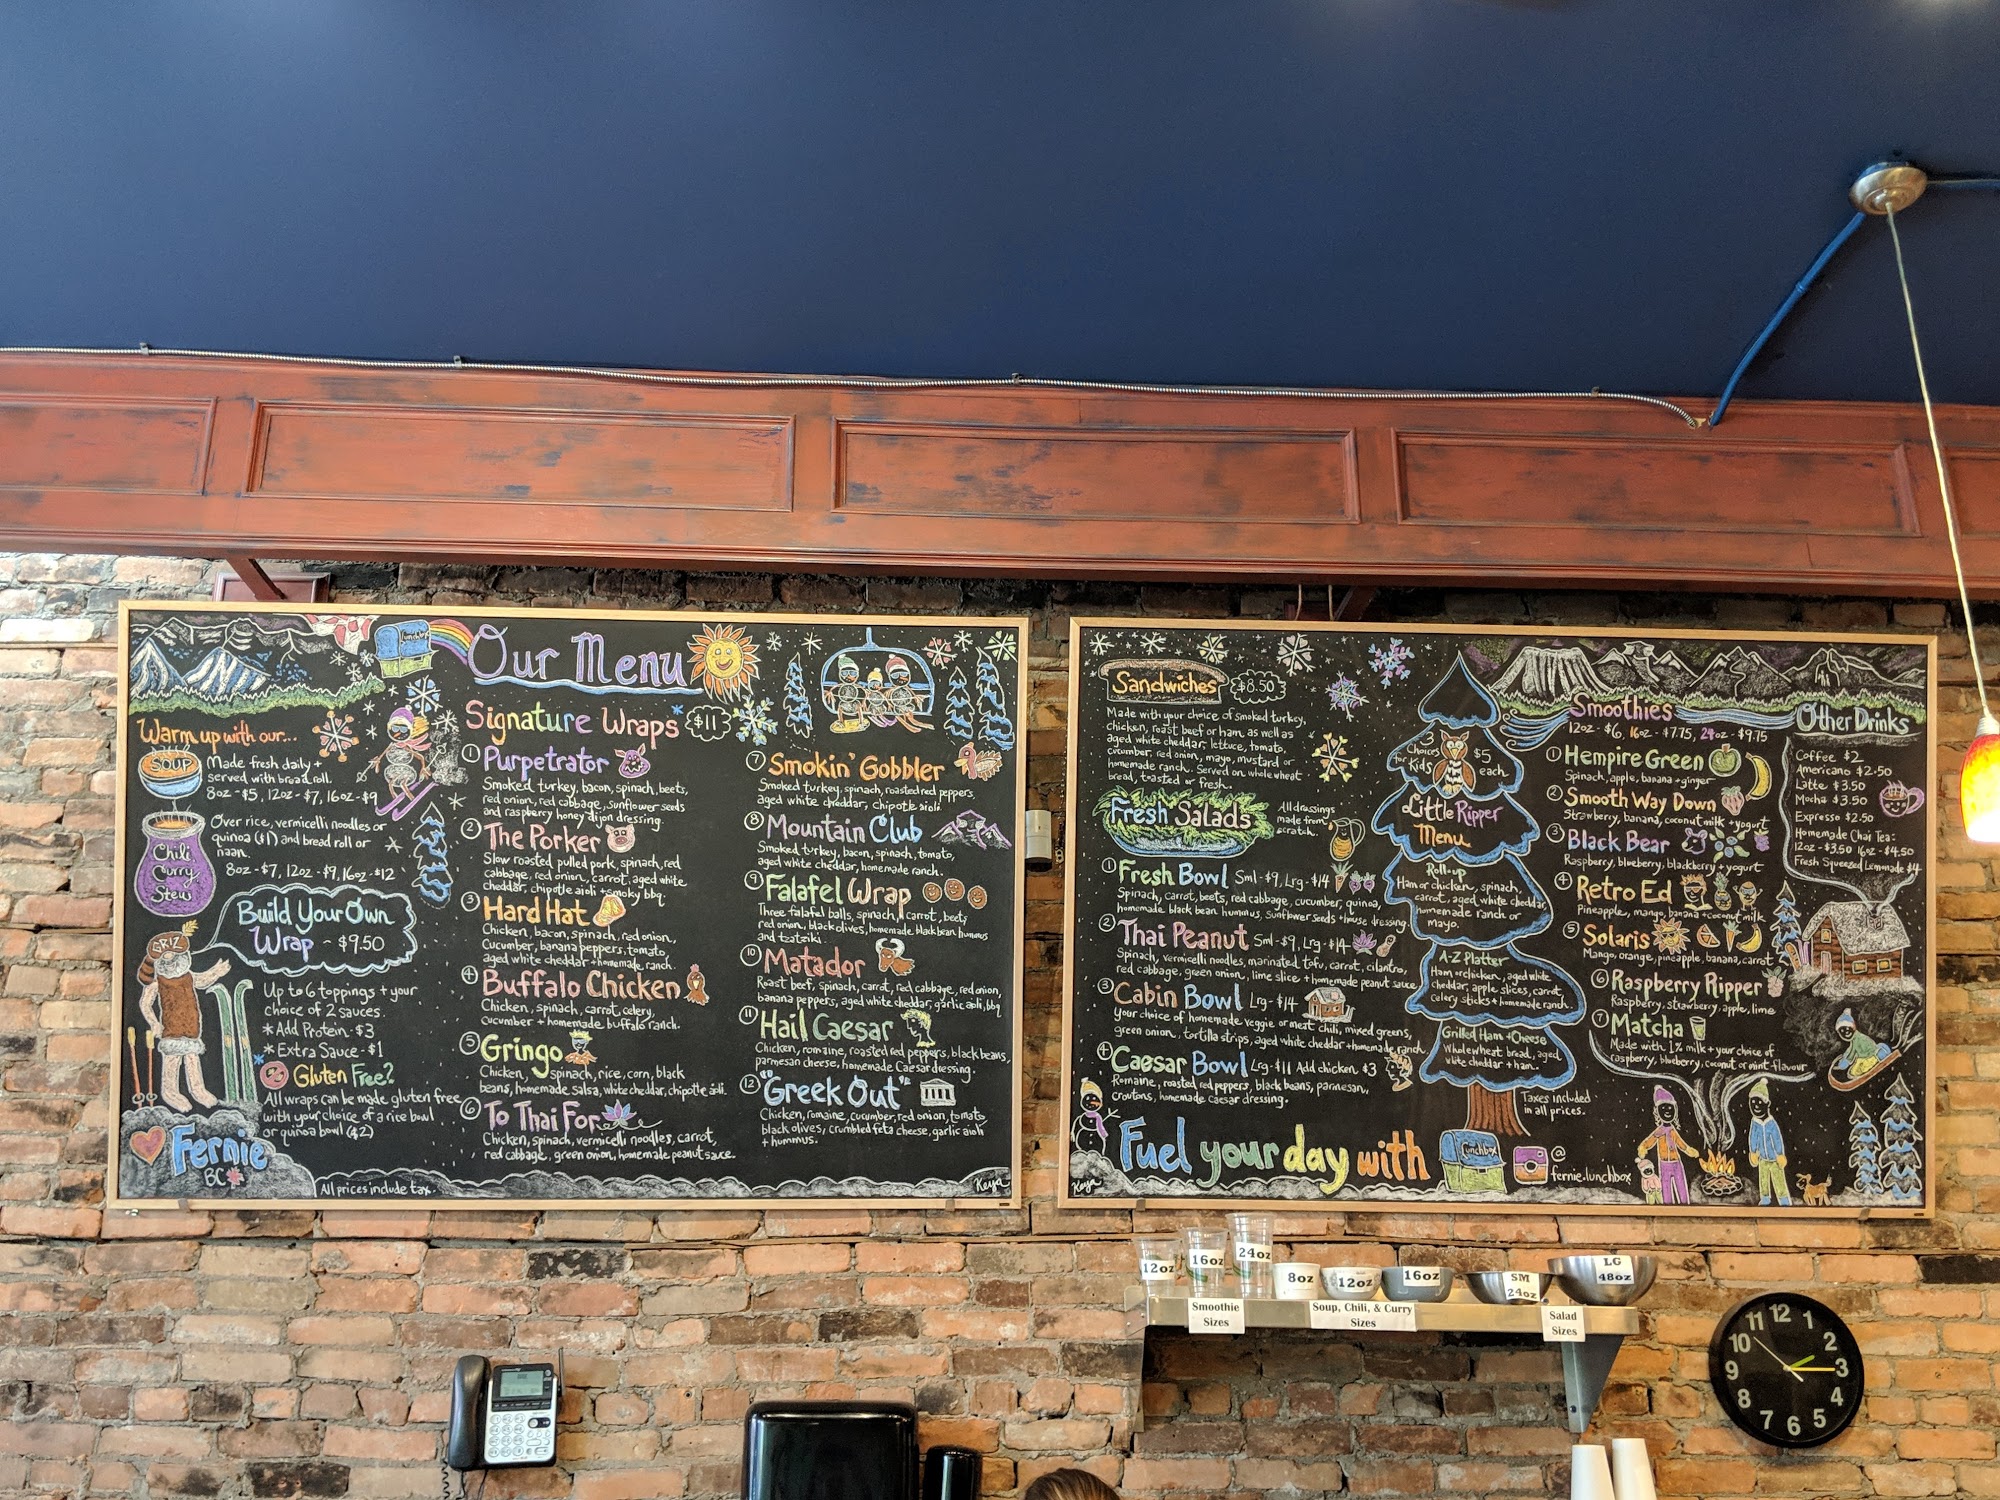 Our Menu
lunchbox
Warm up with our...
SOUP
Made fresh daily +
served with bread roll.
8oz - $5, 12oz - $7, 16oz - $9
Chili
Curry
Stew
Over rice, vermicelli noodles or
quinoa ($1) and bread roll or
naan.
8oz - $7, 12oz - $9, 16oz - $12
Build Your Own
Wrap ~ $9.50
GRIZ
Up to 6 toppings + your
choice of 2 sauces.
*Add Protein - $3
*Extra Sauce - $1
Gluten Free?
All wraps can be made gluten free
with your choice of a rice bowl
or quinoa bowl ($2)
Fernie
BC
All prices include tax.
Signature Wraps $11
1 Purpetrator
Smoked turkey, bacon, spinach, beets,
red onion, red cabbage, sunflower seeds
and raspberry honey dijon dressing.
2 The Porker
Slow roasted pulled pork, spinach, red
cabbage, red onion, carrot, aged white
cheddar, chipotle aioli + smoky bbq.
3 Hard Hat
Chicken, bacon, spinach, red onion,
Cucumber, banana peppers, tomato,
aged white cheddar + homemade ranch.
4 Buffalo Chicken
Chicken, spinach, carrot, celery,
cucumber + homemade buffalo ranch.
5 Gringo
Chicken, spinach, rice, corn, black
beans, homemade salsa, white cheddar, chipotle aioli.
6 To Thai For
Chicken, spinach, vermicelli noodles, carrot,
red cabbage, green onion, homemade peanut sauce.
7 Smokin' Gobbler
Smoked turkey, spinach, roasted red peppers,
aged white cheddar, chipotle aioli
8 Mountain Club
Smoked turkey, bacon, spinach, tomato,
aged white cheddar, homemade ranch.
9 Falafel Wrap
Three falafel balls, spinach, carrot, beets
red onion, black olives, homemade black bean hummus
and tzatziki.
10 Matador
Roast beef, spinach, carrot, red cabbage, red onion,
banana peppers, aged white cheddar, garlic aioli, bbq
11 Hail Caesar
Chicken, romaine, roasted red peppers, black beans,
parmesan cheese, homemade Caesar dressing.
12 "Greek Out"
Chicken, romaine, cucumber, red onion, tomato,
black olives, crumbled feta cheese, garlic aioli
+ hummus.
Keya
Sandwiches $8.50
Made with your choice of smoked turkey,
chicken, roast beef or ham, as well as
aged white cheddar, lettuce, tomato,
cucumber, red onion, mayo, mustard or
homemade ranch. Served on whole wheat
bread, toasted or fresh.
Fresh Salads
All dressings
made from
scratch.
1 Fresh Bowl Sml - $9, Lrg - $14
Spinach, carrot, beets, red cabbage, cucumber, quinoa,
homemade black bean hummus, sunflower seeds + house dressing.
2 Thai Peanut Sml - $9, Lrg - $14
Spinach, vermicelli noodles, marinated tofu, carrot, cilantro,
red cabbage, green onion, lime slice + homemade peanut sauce
3 Cabin Bowl Lrg - $14
Your choice of homemade veggie or meat chili, mixed greens,
green onion, tortilla strips, aged white cheddar + homemade ranch.
4 Caesar Bowl Lrg - $11 Add chicken $3
Romaine, roasted red peppers, black beans, parmesan,
croutons, homemade caesar dressing.
Keya
Fuel your day with
lunchbox
@
fernie.lunchbox
3 Choices for Kids
$5 each
Little Ripper
Menu
Roll-up
Ham or chicken, spinach,
carrot, aged white cheddar,
homemade ranch or
mayo.
A-Z Platter
Ham or chicken, aged white
cheddar, apple slices, carrot,
celery sticks + homemade ranch.
Grilled Ham + Cheese
Whole wheat bread, aged
white cheddar + ham.
Taxes included
in all prices.
Smoothies
12oz - $6, 16oz - $7.75, 24oz - $9.75
1 Hempire Green
Spinach, apple, banana + ginger
2 Smooth Way Down
Strawberry, banana, coconut milk + yogurt
3 Black Bear
Raspberry, blueberry, blackberry + yogurt
4 Retro Ed
Pineapple, mango, banana + coconut milk
5 Solaris
Mango, orange, pineapple, banana, carrot
6 Raspberry Ripper
Raspberry, strawberry, apple, lime
7 Matcha
Made with 1% milk + your choice of
raspberry, blueberry, coconut or mint flavour
Other Drinks
Coffee $2
Americano $2.50
Latte $3.50
Mocha $3.50
Expresso $2.50
Homemade Chai Tea:
12oz - $3.50 16oz - $4.50
Fresh Squeezed Lemonade $4
12oz
16oz
24oz
8oz
12oz
16oz
SM
24oz
LG
48oz
Smoothie
Sizes
Soup, Chili, & Curry
Sizes
Salad
Sizes
12
1
2
3
4
5
6
7
8
9
10
11